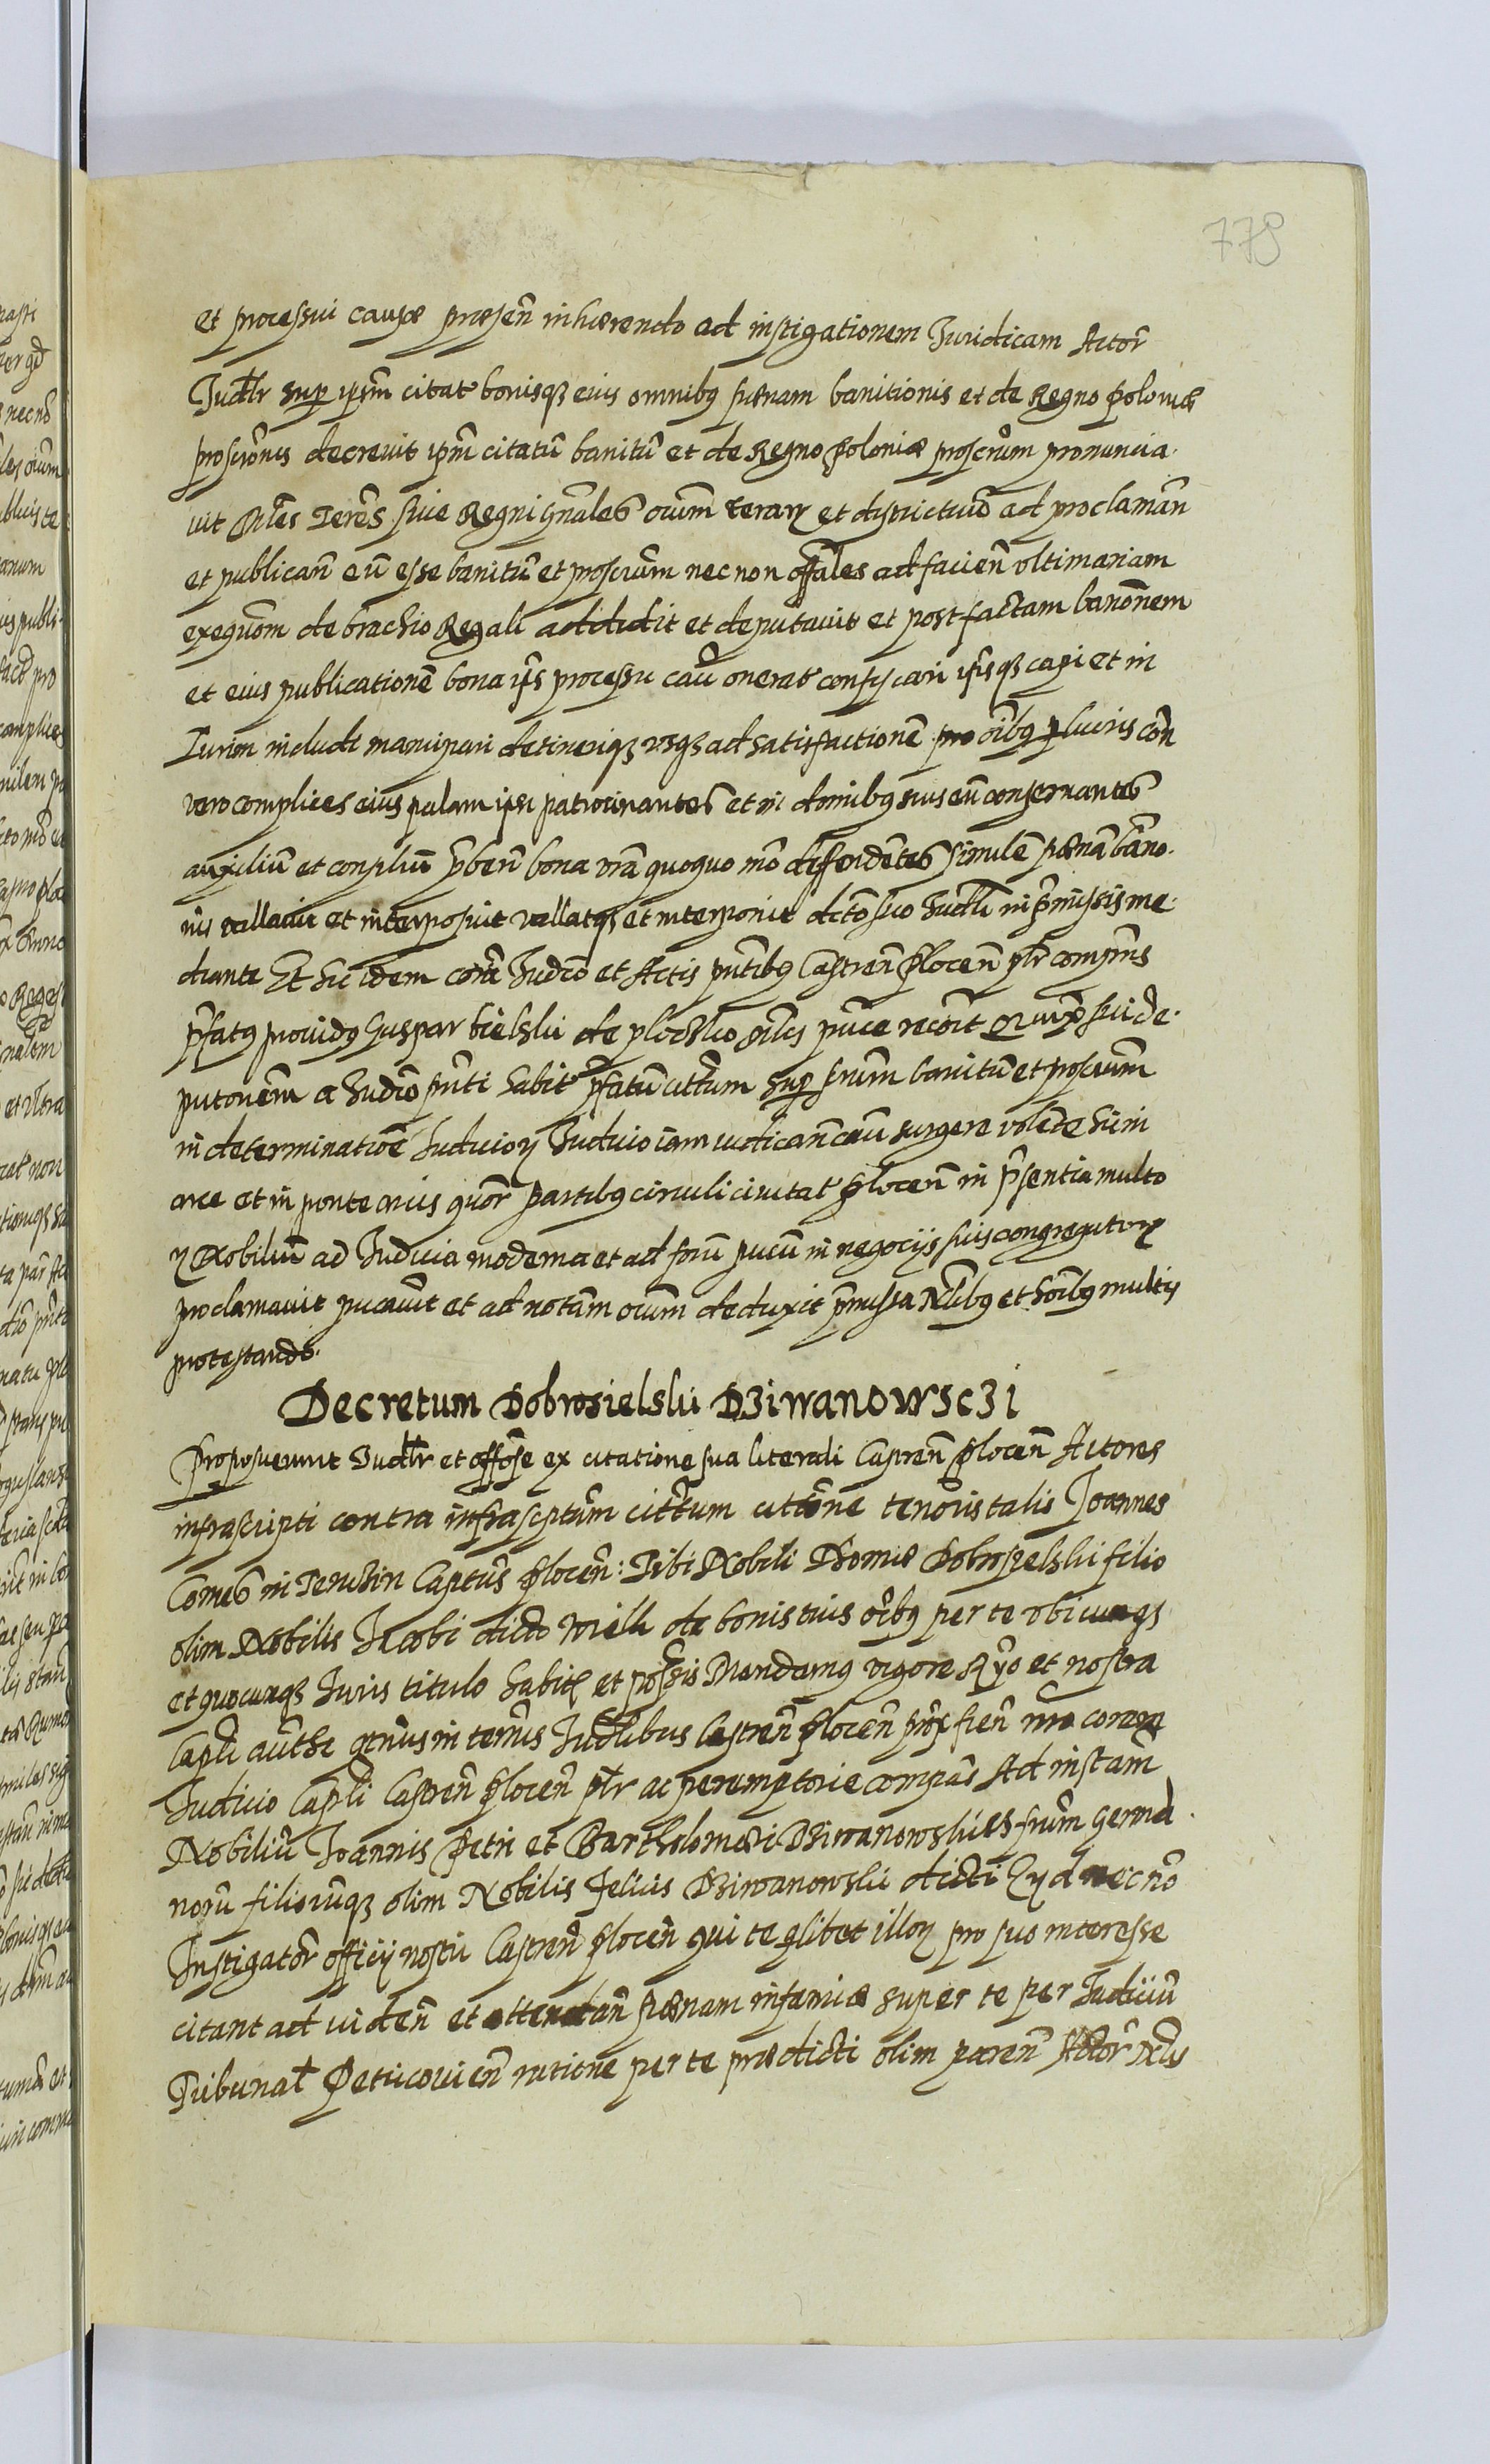 779
et processui causæ præsen̄ inhærendo ad instigationem Juridicam Actor̄
Judlr̄ sup ipsm̄ citat bonisq3 eius omnibq pœnam banitionis et de Regno Poloniæ
proscrōnis decrevit ipm̄ citatū banitū et de Regno Poloniæ proscrūm pronuncia.
vit Terrēs sive Regni gn̄ales oium̄ terarȝ et districtuū ad proclamān̄
et publican̄ eū esse banitū et proscrūm nec non offāles ad facien̄ ultimariam
exequōm de brachio Regali addidit et deputavit et post factam banōnem
et eius publicationē bona ips̄ processu cau̅ onerat confiscari ipsq3 capi et in
Turim includi mancipari detineriq3 usq3 ad satisfactionē pro oībq lucris con̄
vero complices eius palam ipsi patrocinantes et in domibq suis eū conservantes
auxiliū et consiliū bona quoquo mō deffendētes similē pœnā bāno.
nis vallavit et interposuit vallatqs et interponit dctō suo Judlī in p̄missis me.
diante Et hic idem corā Judcō et Actis pn̄tibq Castren̄ Plocen̄ plr̄ compn̄s
p̄fatq providq Gaspar Bielski de Plocsko pn̄ce recōit
putōnem a Judcō pn̄ti habit p̄fatū citatum sup banitū et proscrūm
in determinatiōe Judiciorȝ Judicio iam iudican̄ cau̅ surgere volēte hic in
arce et in ponte arcis quōr partibq circuli civitat Plocen̄ in p̄sentia multo
rȝ Nobiliū ad Judicia moderna et ad forū pucū in negocijs suis congregatorȝ
proclamavit pucavit et ad notām oium̄ deduxit p̄missa Nlībq et hōibq multis
protestando.
Decretum Dobrosielski D3iwanowsc3i
Proposuerunt Judlr̄ et offōse ex citatione sua literali Castren̄ Plocen̄ Actores
infrascripti contra infrascptum̄ citātum citōne tenōris talis Joannes
Comes in Tenchin Captn̄s Plocen̄: Tibi Nobili Thomæ Dobroselski filio
olim Nobilis Jacobi dicto Wilk de bonis tuis oībq per te ubicunqs
et quocunq3 Juris titulo habit et possīs Mandamq vigore R et nostra
Capli auth̄e qtn̄us in termis Judlibus Castren̄ Plocen̄ prox̄ fien̄ coram
Judicio Capli Castren̄ Plocen̄ plr̄ ac peremptorie compās Ad instām̄
Nobiliū Joannis Petri et Bartholomæi D3iwanowskich frūm germa.
norū filiorūq3 olim Nobilis Felicis D3iwanowski dicti Zyd necnō
Instigator̄ officij nostri Castren̄ Plocen̄ qui te qlibet illorȝ pro suo interesse
citant ad viden̄ et attentan̄ pœnam infamiæ super te per Judiciū
Tribunal Petricovien̄ ratione per te prædicti olim paren̄ Actor̄